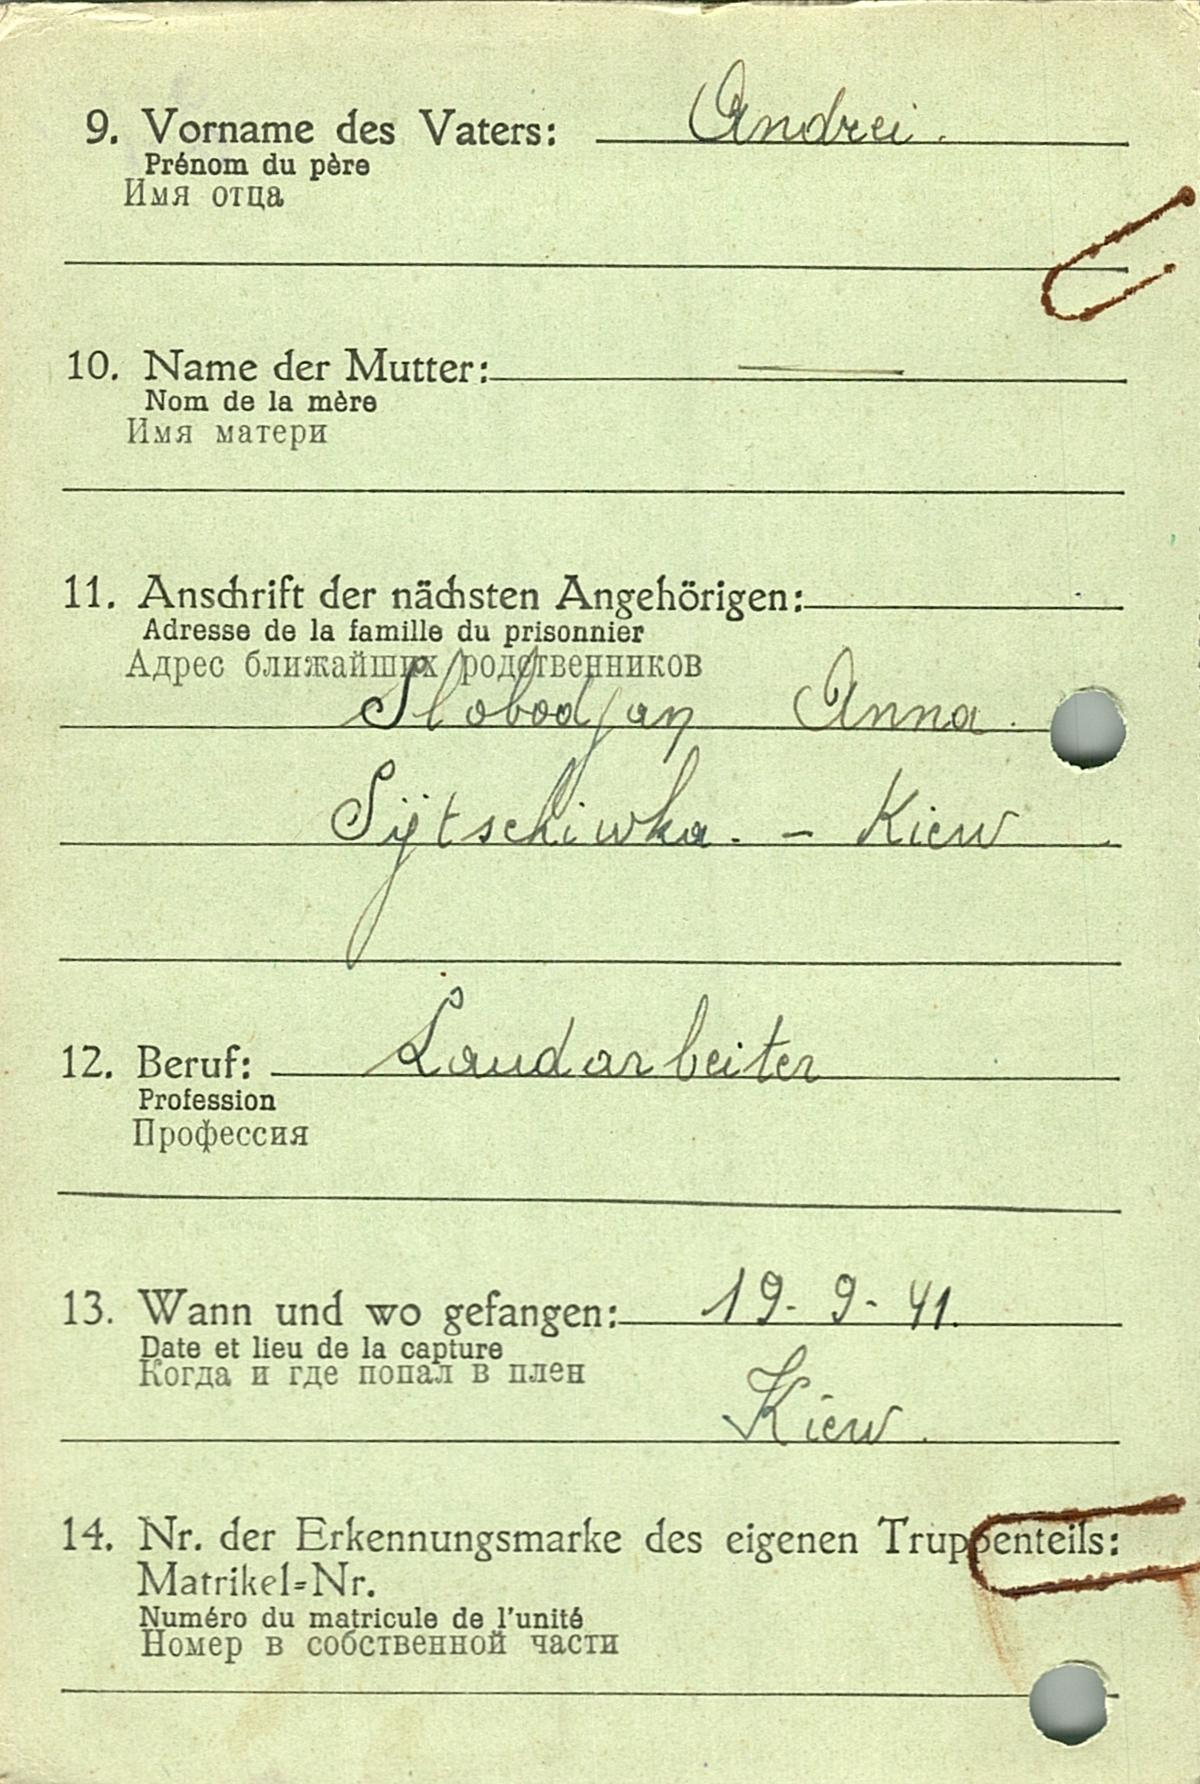 9. Vorname des Vaters: Andrei.
Prénom du père
Имя отца
10. Name der Mutter: —
Nom de la mère
Имя матери
11. Anschrift der nächsten Angehörigen:
Adresse de la famille du prisonnier
Адрес ближайших родственников
Slobodjan Anna.
Sijtschiwka. - Kiew
12. Beruf: Landarbeiter
Profession
Профессия
13. Wann und wo gefangen: 19. 9. 41.
Date et lieu de la capture
Когда и где попал в плен
Kiew.
14. Nr. der Erkennungsmarke des eigenen Truppenteils:
Matrikel-Nr.
Numéro du matricule de l'unité
Номер в собственной части